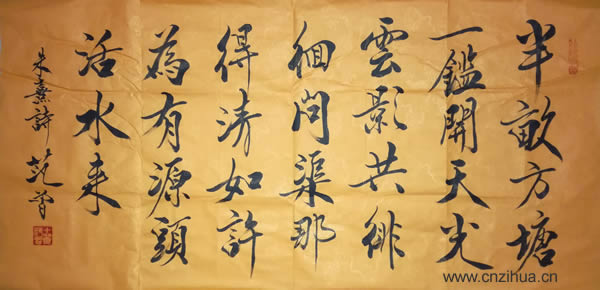 半畝方塘
一鑑開天光
雲影共徘
徊問渠那
得清如許
為有源頭
活水来
朱熹詩 范曾
www.cnzihua.cn